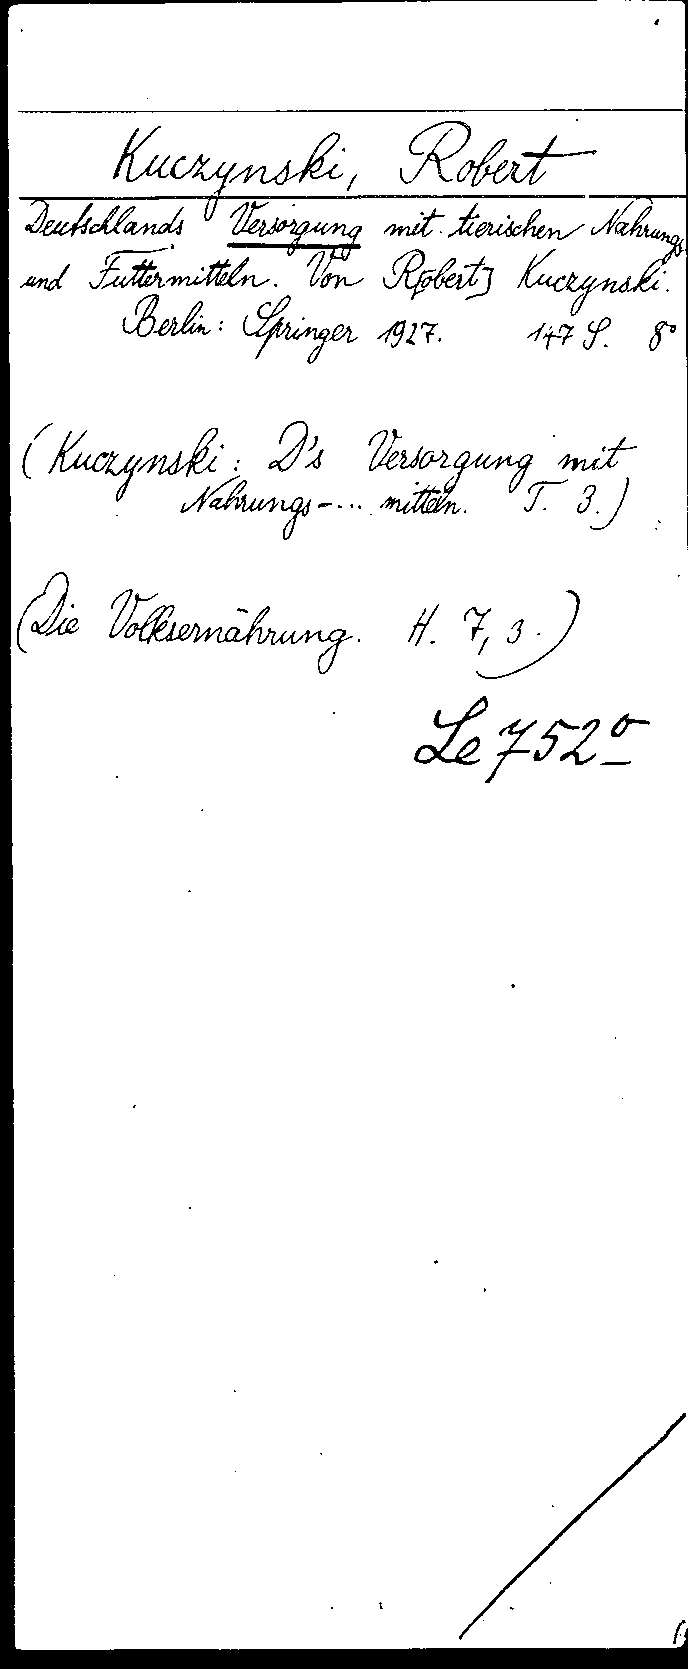 Kuczynski, Robert
Deutschlands Versorgung mit tierischen Nahrungs
und Futtermitteln. Von R[obert] Kuczynski.
Berlin: Springer 1927. 147 S. 8°
(Kuczynski: D's Versorgung mit
Nahrungs-... mitteln. T. 3.)
(Die Volksernährung. H. 7, 3.)
Le 752º